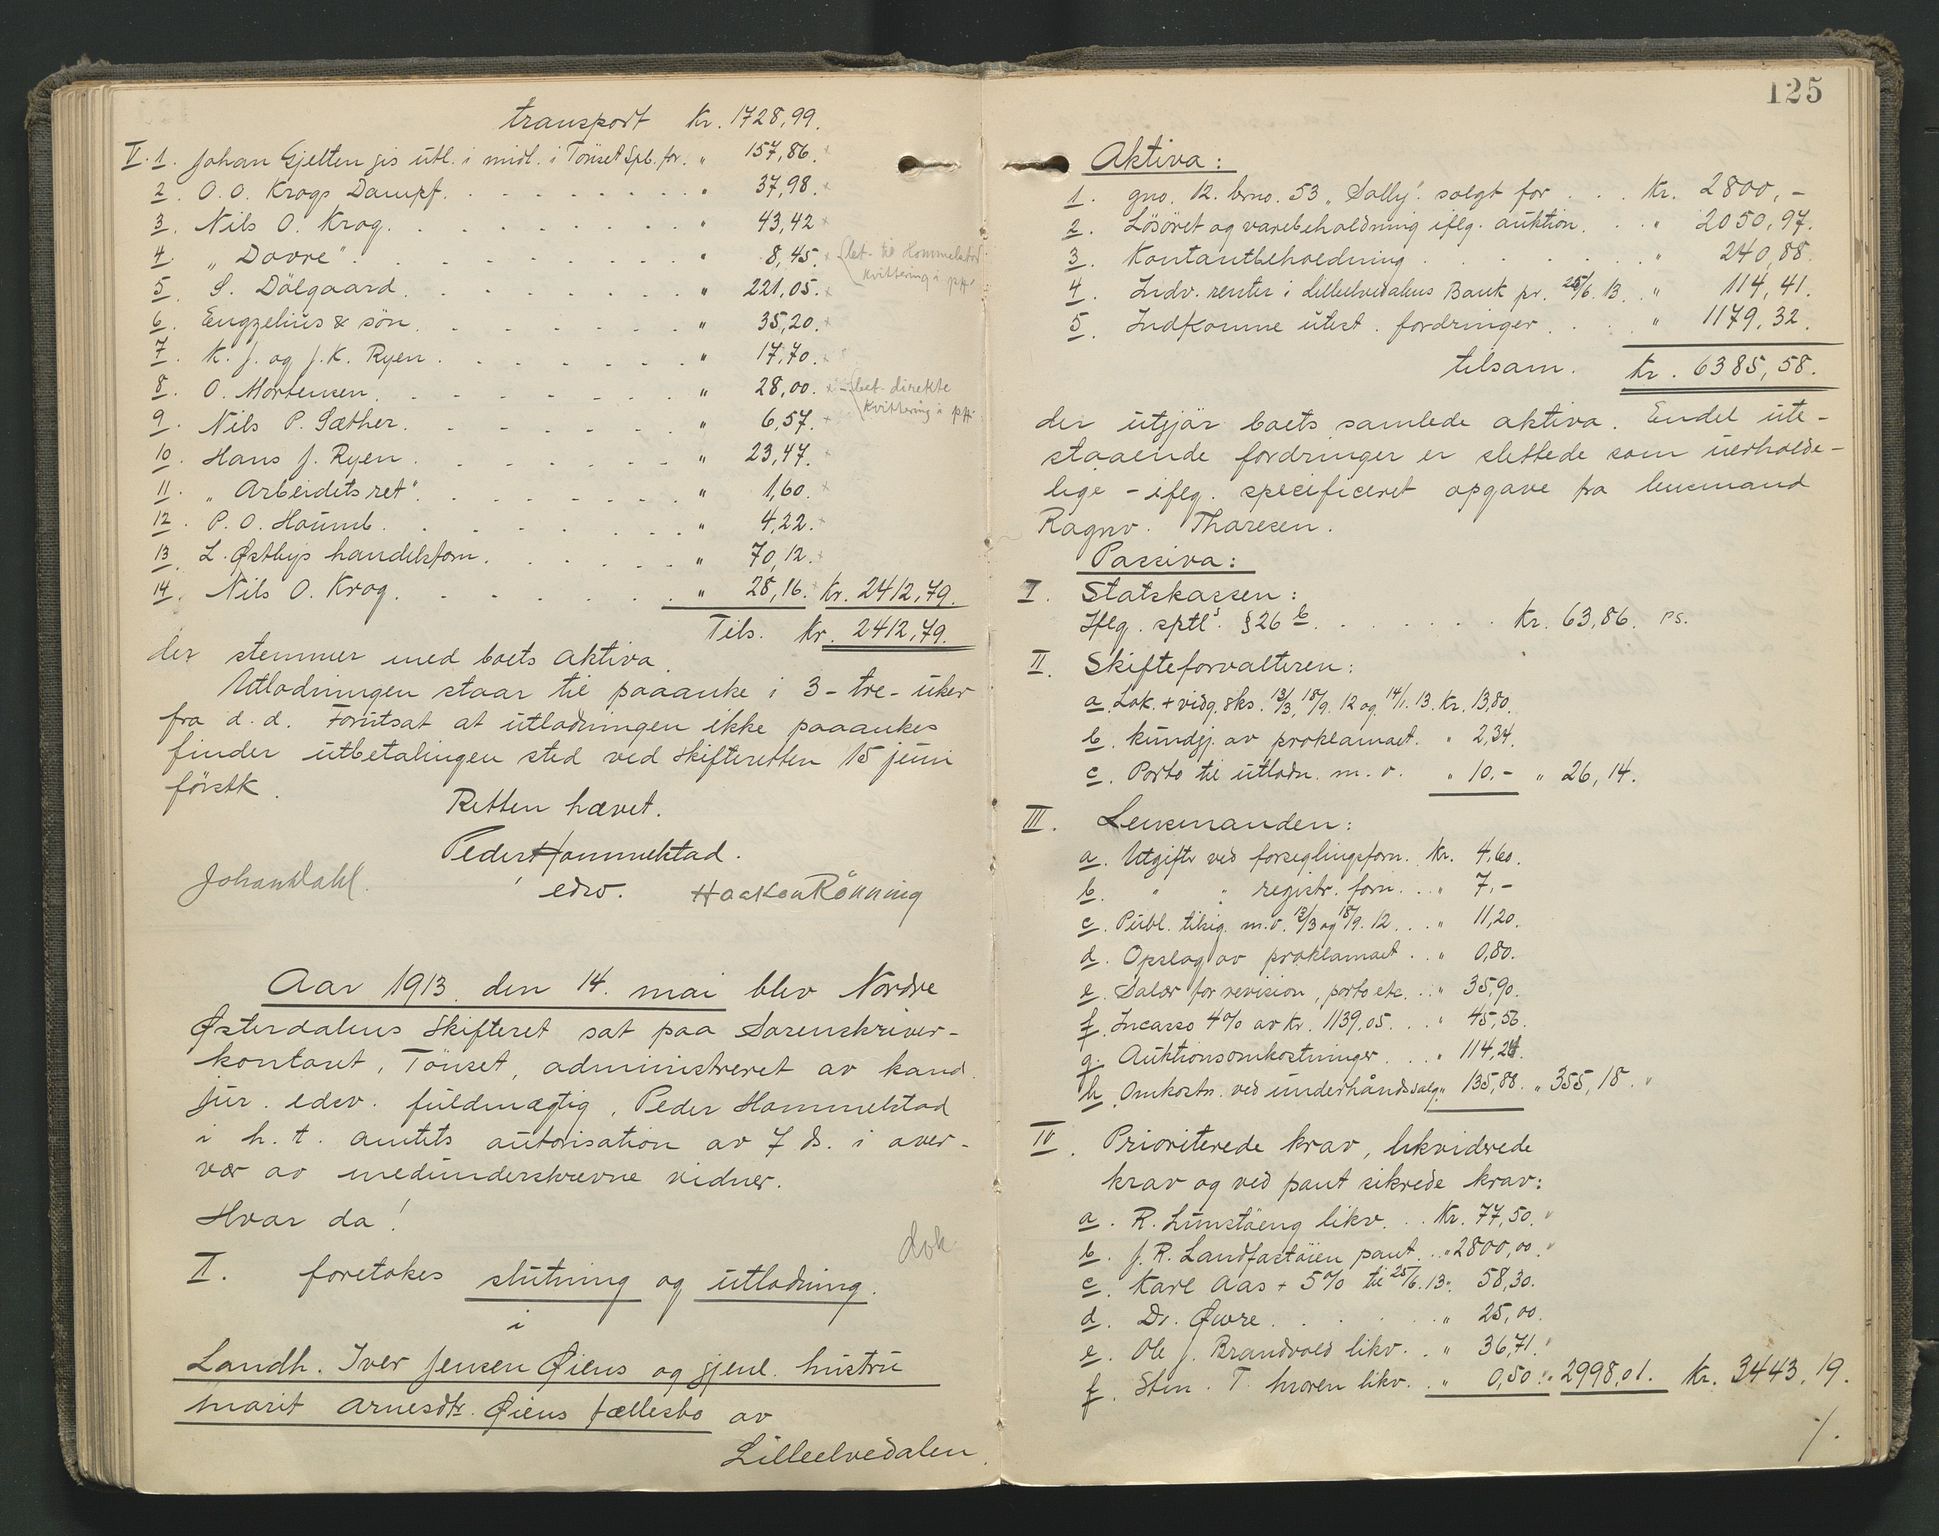 transport Kr. 1728,99.
V. 1. Johan Gjelten gis utl. i midl. i Tönset Spb. for. " 157,86.
2. O. O. Krogs Dampf. " 37,98.
3. Nils O. Krog. " 43,42
4. "Dovre". " 8,45. bet. til Hommelstad
kvittering i
5. S. Dölgaard. " 221,05.
6. Engzelius & søn. " 35,20.
7. K. J. og J. K. Ryen. " 17,70.
8. O. Mortensen. " 28,00. bet. direkte
kvittering i
9. Nils P. Sæther. " 6,57.
10. Hans J. Ryen. " 23,47.
11. "Arbeidets ret". " 1,60.
12. P. O. " 4,22.
13. L. Østbys handelsforr. " 70,12.
14. Nils O. Krog. " 28,16. Kr. 2412,79.
Tils. Kr. 2412,79.
der stemmer med boets aktiva.
Utlodningen staar til paaanke i 3 - tre - uker
fra d. d. Forutsat at utlodningen ikke paaankes
finder utbetalingen sted ved skifteretten 15 juni
førstk.
Retten hævet.
Peder Hommelstad.
edsv.
Johan Dahl. Haakon Rönning
Aar 1913 den 14. mai blev Nordre
Østerdalens skifteret sat paa Sorenskriver-
kontoret, Tönset, administreret av kand.
jur. edsv. fuldmægtig, Peder Hommelstad
i h. t. amtets autorisation av 7 ds. i over-
vær av medunderskrevne vidner.
Hvor da!
dok.
II. foretokes slutning og utlodning.
i
Landh. Iver Jensen Øiens og gjenl. hustru
Marit Arnesdtr. Øiens fællesbo av
Lilleelvedalen.
125
Aktiva:
1. gno. 12. brno. 53 "Solly". solgt for . . . Kr. 2800,-
2. Lösöret og varebeholdning iflg. auktion. . . " 2050,97.
3. Kontantbeholdning . . . " 240,88.
4. Indv. renter i Lilleelvedalens Bank pr. 25/6. 13. " 114,41.
5. Indkomne utest. fordringer . . . " 1179,32.
tilsam. Kr. 6385,58.
der utgjör boets samlede aktiva. Endel ute-
staaende fordringer er slettede som uerholde-
lige - iflg. specificeret opgave fra lensmand
Ragnv. Thoresen.
Passiva:
I. Statskassen:
Iflg. sptl. § 26 b . . . Kr. 63,86. ps.
II. Skifteforvalteren:
a. Lok. + vidg. sks. 13/3, 18/9. 12 og 14/1. 13. Kr. 13,80.
b. kundgj. av proklamaet. " 2,34.
c. Porto til utlodn. m. v. " 10.- " 26,14.
III. Lensmanden:
a. Utgifter ved forseglingsforr. Kr. 4,60.
b. " " registr. forr. . . " 7,-
c. Publ. tilsig. m. v. 13/3 og 18/9. 12 . . . " 11,20.
d. Opslag av proklamaet . . " 0,80.
e. Salær for revision, porto etc. . . " 35,90.
f. Incasso 4% av Kr. 1139,05. . . " 45,56.
g. Auktionsomkostninger . . . " 114,24.
h. Omkostn. ved underhåndssalg. " 135,88. " 355,18. "
IV. Prioriterede krav, likviderede
krav og ved pant sikrede krav:
a. R. likv. . . Kr. 77,50.
b. J. R. Landfastöien pant . . " 2800,00.
c. Karl Aas + 5% til 25/6. 13. " 58,30.
d. Dr. Øvre . . . " 25,00.
e. Ole J. Brandvold likv. . . " 36,71.
f. Sten. T. Moren likv. . . " 0,50. " 2998,01. Kr. 3443,19.
./.